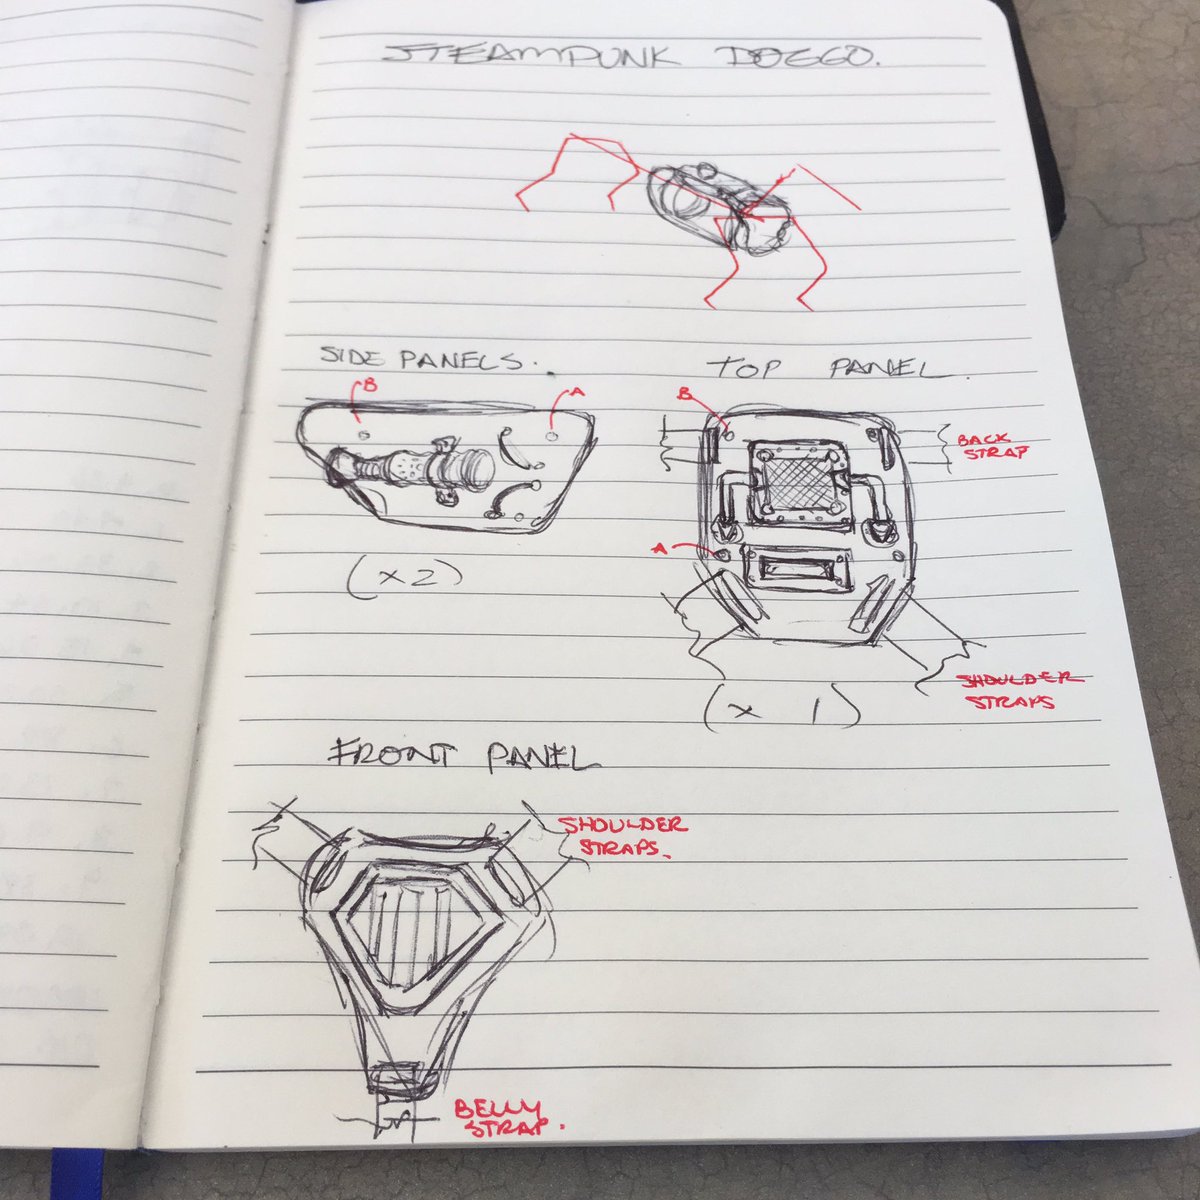 STEAMPUNK DOGGO.
SIDE PANELS.
B
A
(x2)
TOP PANEL.
B
BACK
STRAP
A
SHOULDER
STRAPS
(x 1)
FRONT PANEL
SHOULDER
STRAPS.
BELLY
STRAP.